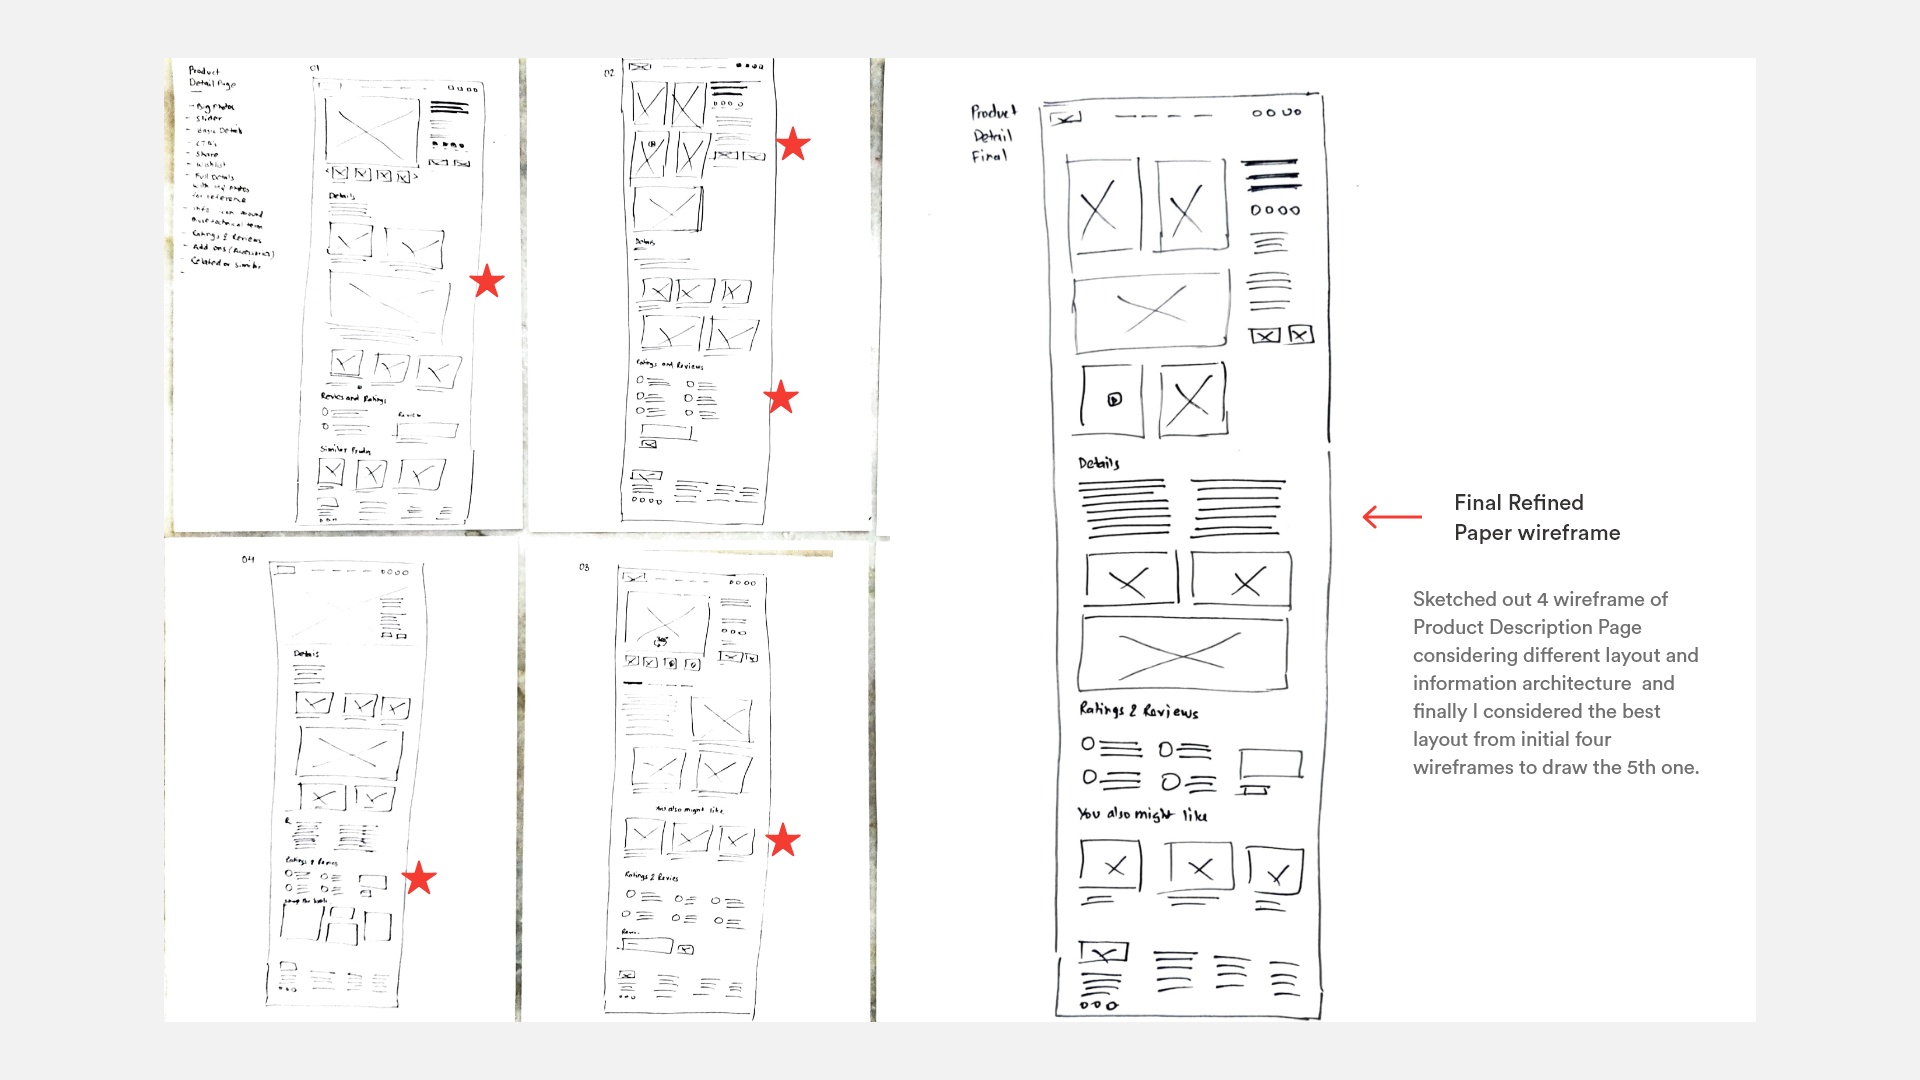 Product
Detail Page
- Big Photos
- Slider
- Basic Details
- CTA's
- Share
- Wishlist
- Full Details
with photos
for reference
- Info icon around
technical term
- Ratings & Reviews
- Add ons (Accessories)
- Related or similar
01
Details
Reviews and Ratings
Review
Similar
02
Details
Ratings and Reviews
04
Details
Ratings & Reviews
03
360°
You also might like
Ratings & Reviews
Product
Detail
Final
Details
Ratings & Reviews
You also might like
Final Refined
Paper wireframe
Sketched out 4 wireframe of
Product Description Page
considering different layout and
information architecture and
finally I considered the best
layout from initial four
wireframes to draw the 5th one.